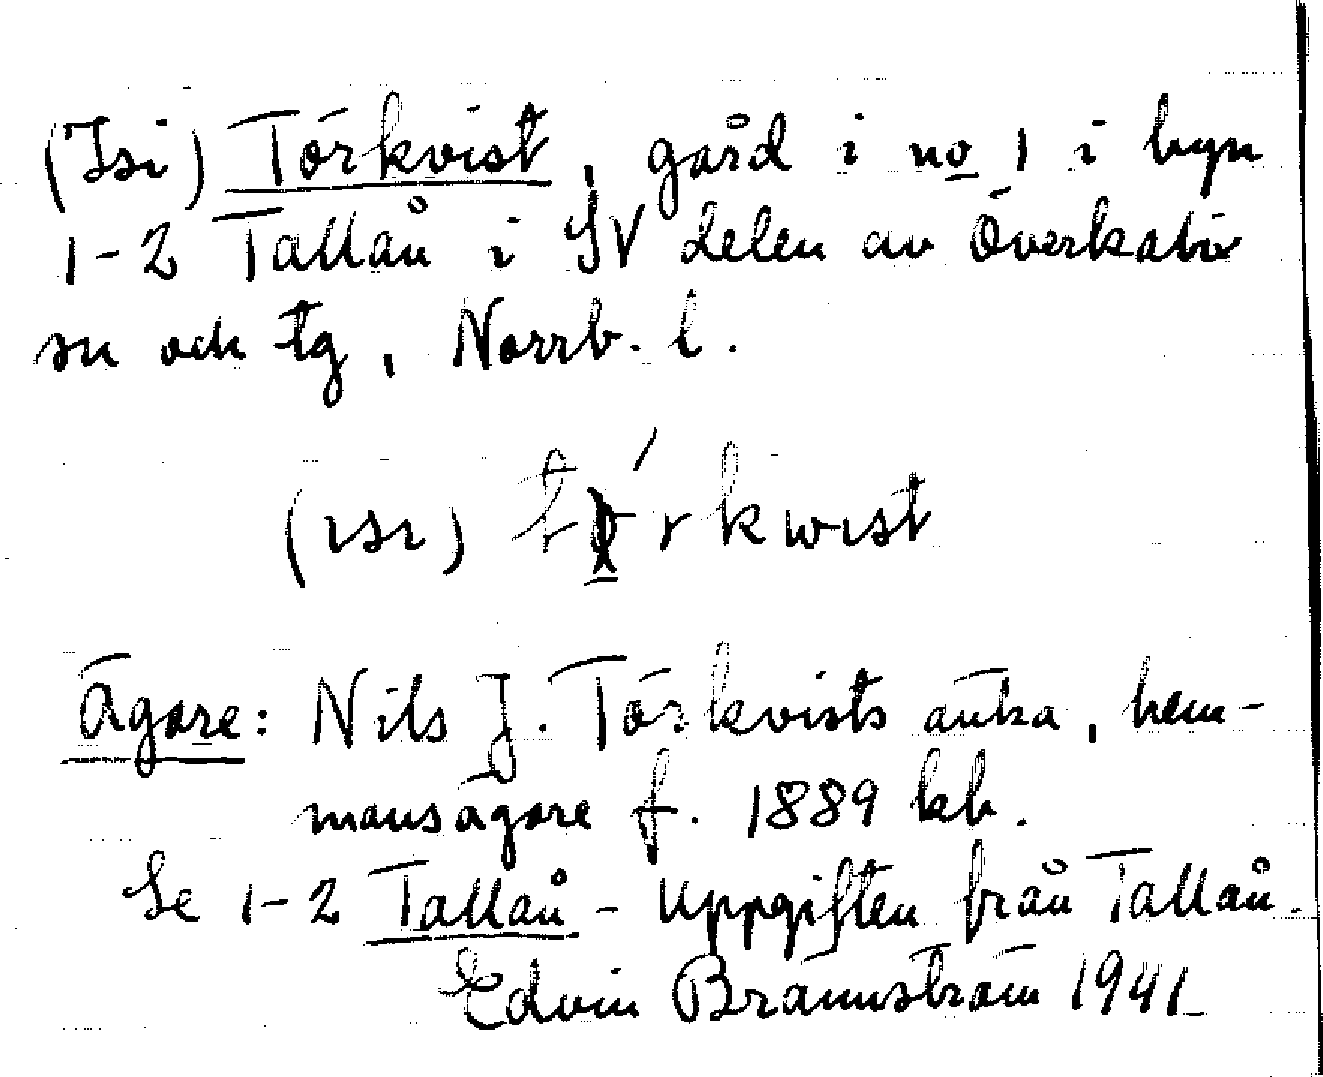 (Isi) Törkvist, gård i no 1 i byn
1-2 Tallån i SV delen av Överkalix
sn och tg, Norrb. l.
(ısı) kwıst
Ägare: Nils J. Törkvists änka, hem-
mansägare f. 1889 kb.
Se 1-2 Tallån - Uppgiften från Tallån.
Edvin Brännström 1941